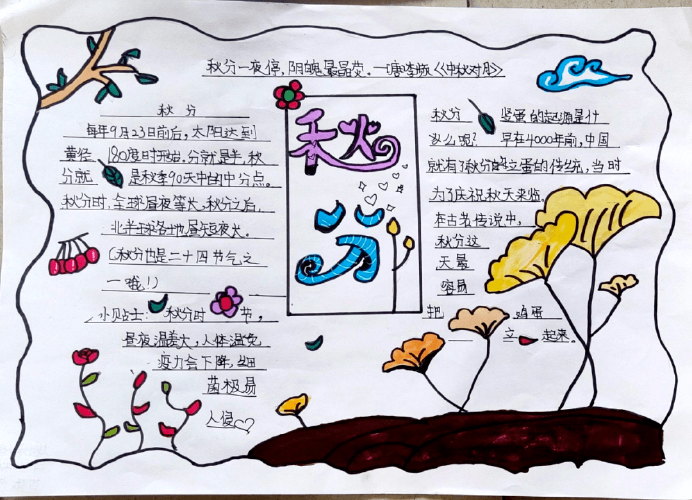 秋分一夜停,阴魄最晶荧。—唐李频《中秋对月》
秋分
每年9月23日前后,太阳达到
黄经180度时开始,分就是半,秋
分就是秋季90天中的中分点。
秋分时,全球昼夜等长,秋分之后,
北半球各地昼短夜长。
(秋分也是二十四节气之
一哦!)
小贴士:秋分时节,
昼夜温差大,人体温免
疫力会下降,细
菌极易
入侵
秋分
秋分竖蛋的起源是什
么呢?早在4000年前,中国
就有了秋分的立蛋的传统,当时
为了庆祝秋天来临.
在古老传说中,
秋分这
天最
容易
把鸡蛋
立起来。